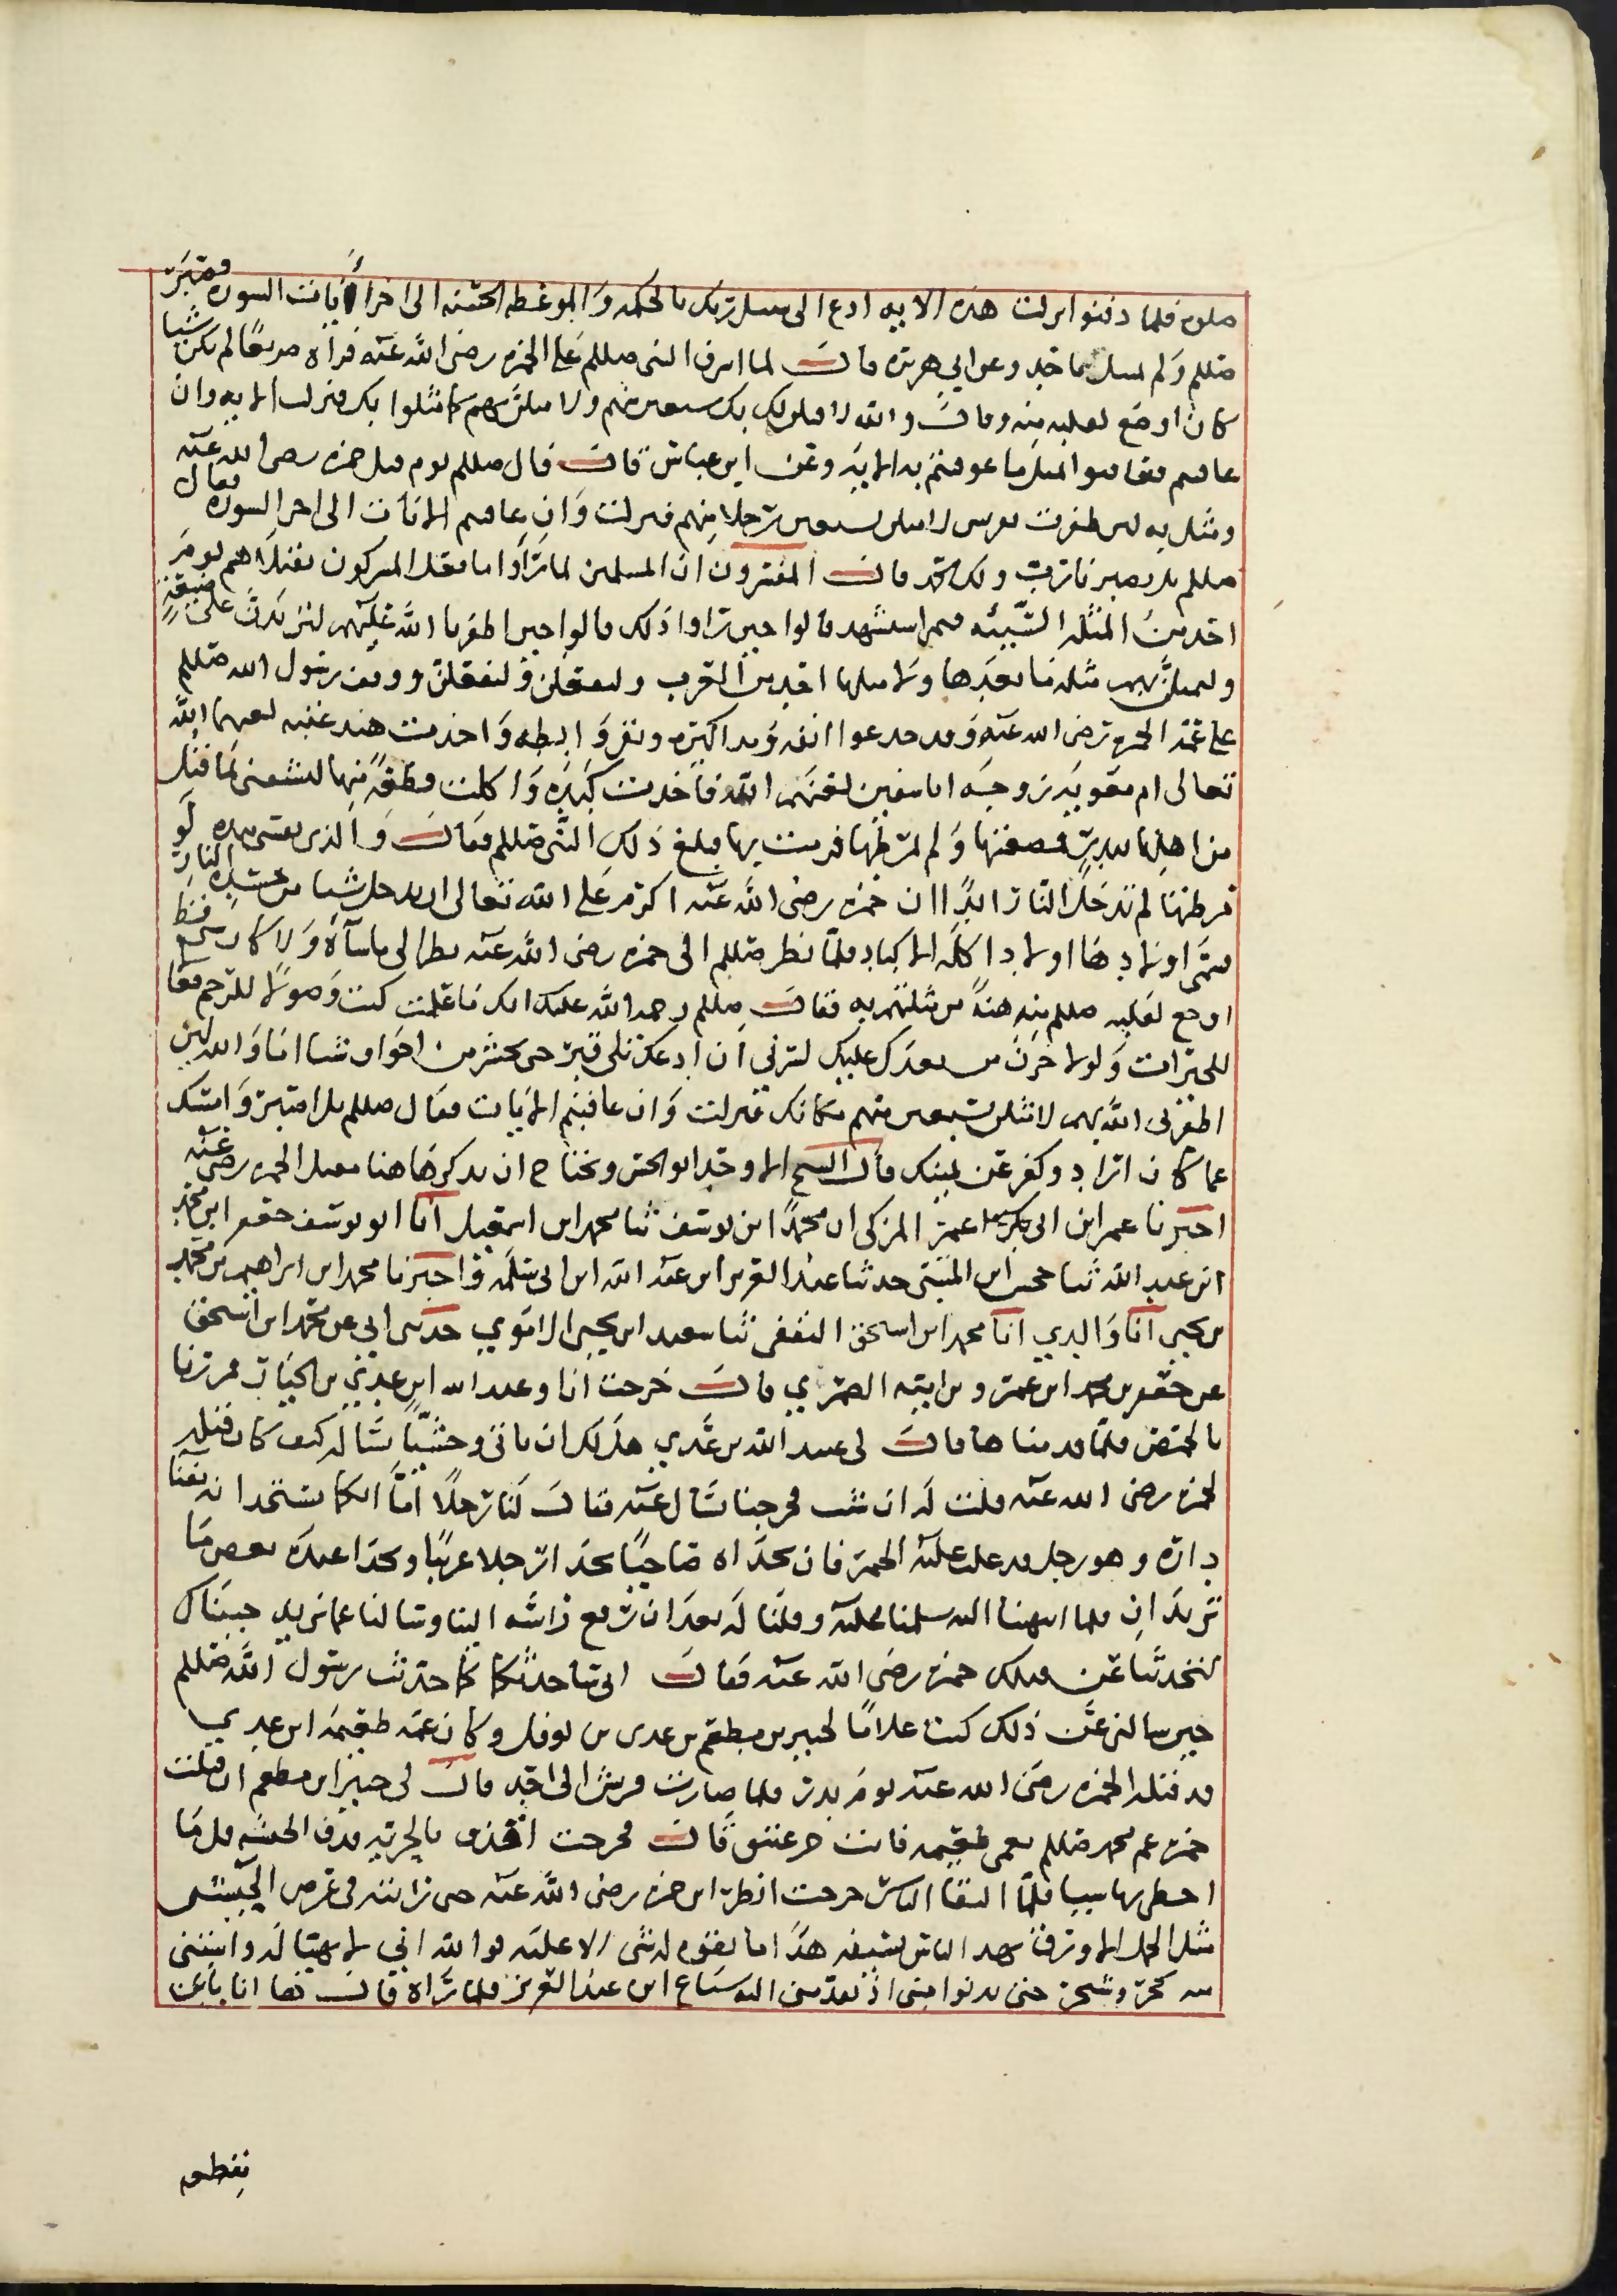 صلوة فلما دفنوا نزلت هذه الاية ادع الى سبيل ربك بالحكمة والموعظة الحسنة الى اخر ايات السورة فصبر
صللم ولم يمثل باحد وعن ابي هريرة قال لما اشرف النبي صللم على الحمزة رضى الله عنه فراه صريعا لم يكن شيا
كان اوجع لقلبه منه وقال والله لاقتلن بك سبعين منهم ولامثلن بهم كما مثلوا بك فنزلت الاية وان
عاقبتم فعاقبوا بمثل ما عوقبتم به الاية وعن ابن عباس قال قال صللم يوم قتل حمزة رضى الله عنه
ومثل به لئن ظفرت بقريش لامثلن بسبعين رجلا منهم فنزلت وان عاقبتم الايات الى اخر السورة فقال
صللم بل نصبر يا رب ولك الحمد قال المفسرون ان المسلمين لما راوا ما فعل المشركون بقتلاهم يوم
احد من المثلة السيئة فيمن استشهد قالوا حين راوا ذلك قالوا حين اظفرنا الله عليهم لنزيدن على صنيعهم
ولنمثلن بهم مثلة ما بعدها ولا قبلها احد من العرب ولنفعلن ولنفعلن ووقف رسول الله صللم
على عمه الحمزة رضى الله عنه وقد جدعوا انفه وبدا كبده وبقر وابطنه واخذت هند عتبة لعنهما الله
تعالى ام معوية زوجة ابا سفين لعنهم الله فاخذت كبده واكلت قطعة منها لتشفى بما قتل
من اهلها ببدر فمضغتها ولم تسرطها فرمت بها فبلغ ذلك النبي صللم فقال والذي نفسي بيده لو
سرطتها لم تدخل النار ابدا ان حمزة رضى الله عنه اكرم على الله تعالى ان يدخل شيا من جسده النار
فسمى اولادها اولاد اكلة الاكباد فلما نظر صللم الى حمزة رضى الله عنه نظر الى ما ساءه ولا كان شي قط
اوجع لقلبه صللم منه هنا من مثلتهم به فقال صللم رحمة الله عليك انك ما علمت كنت وصولا للرحم فعا
للخيرات ولولا حزن من بعدك عليك لسرني ان ادعك حتى تحشر من افواه شتى اما والله لئن
اظفرني الله بهم لامثلن بسبعين منهم مكانك فنزلت وان عاقبتم الايات فقال صللم بل اصبر وامسك
عما كان اراد وكفر عن يمينه قال الشيخ الاوحد ابو الحسن ونحتاج ان نذكر هاهنا مقتل الحمزة رضى عنه
اخبرنا عمر ابن ابي عمر المزكى ان محمدا ابن يوسف ثنا محمد ابن اسمعيل انا ابو يوسف جعفر ابن محمد
ابن عبد الله ثنا ححين ابن المثنى حدثنا عبد العزيز ابن عبد الله ابن ابي سلمة واخبرنا محمد ابن ابراهيم بن محمد
بن يحيى انا والدي انا محمد ابن اسحق الثقفى ثنا سعيد ابن يحيى الاموي حدثني ابي عن محمد ابن اسحق
عن جعفر بن ابن عمرو بن امية الضمري قال خرجت انا وعبد الله ابن عدي بن الخيار فمررنا
بالحمص فلما قدمناها قال لي عبيد الله بن عدي هل لك ان ناتي وحشيا نساله كيف كان قتله
لحمزة رضى الله عنه قلت له ان شئت فخرجنا نسال عنه فقال لنا رجلا اما انكما ستجدانه بفنا
داره وهو رجل قد غلب عليه الخمر فان تجداه صاحيا تجدا رجلا عربيا وتجدا عنده بعض ما
تريدان فلما انتهينا اليه سلمنا عليه وقلنا له بعد ان رفع راسه الينا وسالنا عما نريد جيناك
لتحدثنا عن قتلك حمزة رضى الله عنه فقال اني ساحدثكما كما حدثت رسول الله صللم
حين سالني عن ذلك كنت غلاما لجبير بن مطعم بن عدى بن نوفل وكان عمه طعيمة ابن عدي
قد قتله الحمزة رضى الله عنه يوم بدر فلما صارت قريش الى احد قال لى جبير ابن مطعم ان قتلت
حمزة عم محمد صللم بعمى طعيمة فانت حر عتيق قال فخرجت اقذف بالحربة قذف الحبشة قل ما
اخطى بها شيا فلما التقا الناس خرجت انظر ابن حمزة رضى الله عنه حتى رايته في عرض الجيش
مثل الجمل الاورق يهد الناس بسيفه هدا ما يقوم له شى الا غلبه فوالله اني لاتهيا له واستتر
منه بحجر وشجر حتى يدنوا منى اذ تقدمنى اليه سباع ابن عبد العزيز فلما راه قال ها انا يا ابن
مقطعه